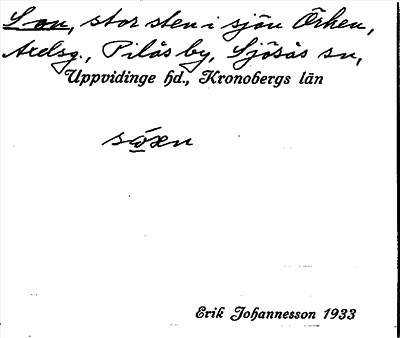 S-on, stor sten i sjön Örken,
Axelsg., Pilås by, Sjösås sn,
Uppvidinge hd., Kronobergs län
söxn
Erik Johannesson 1933